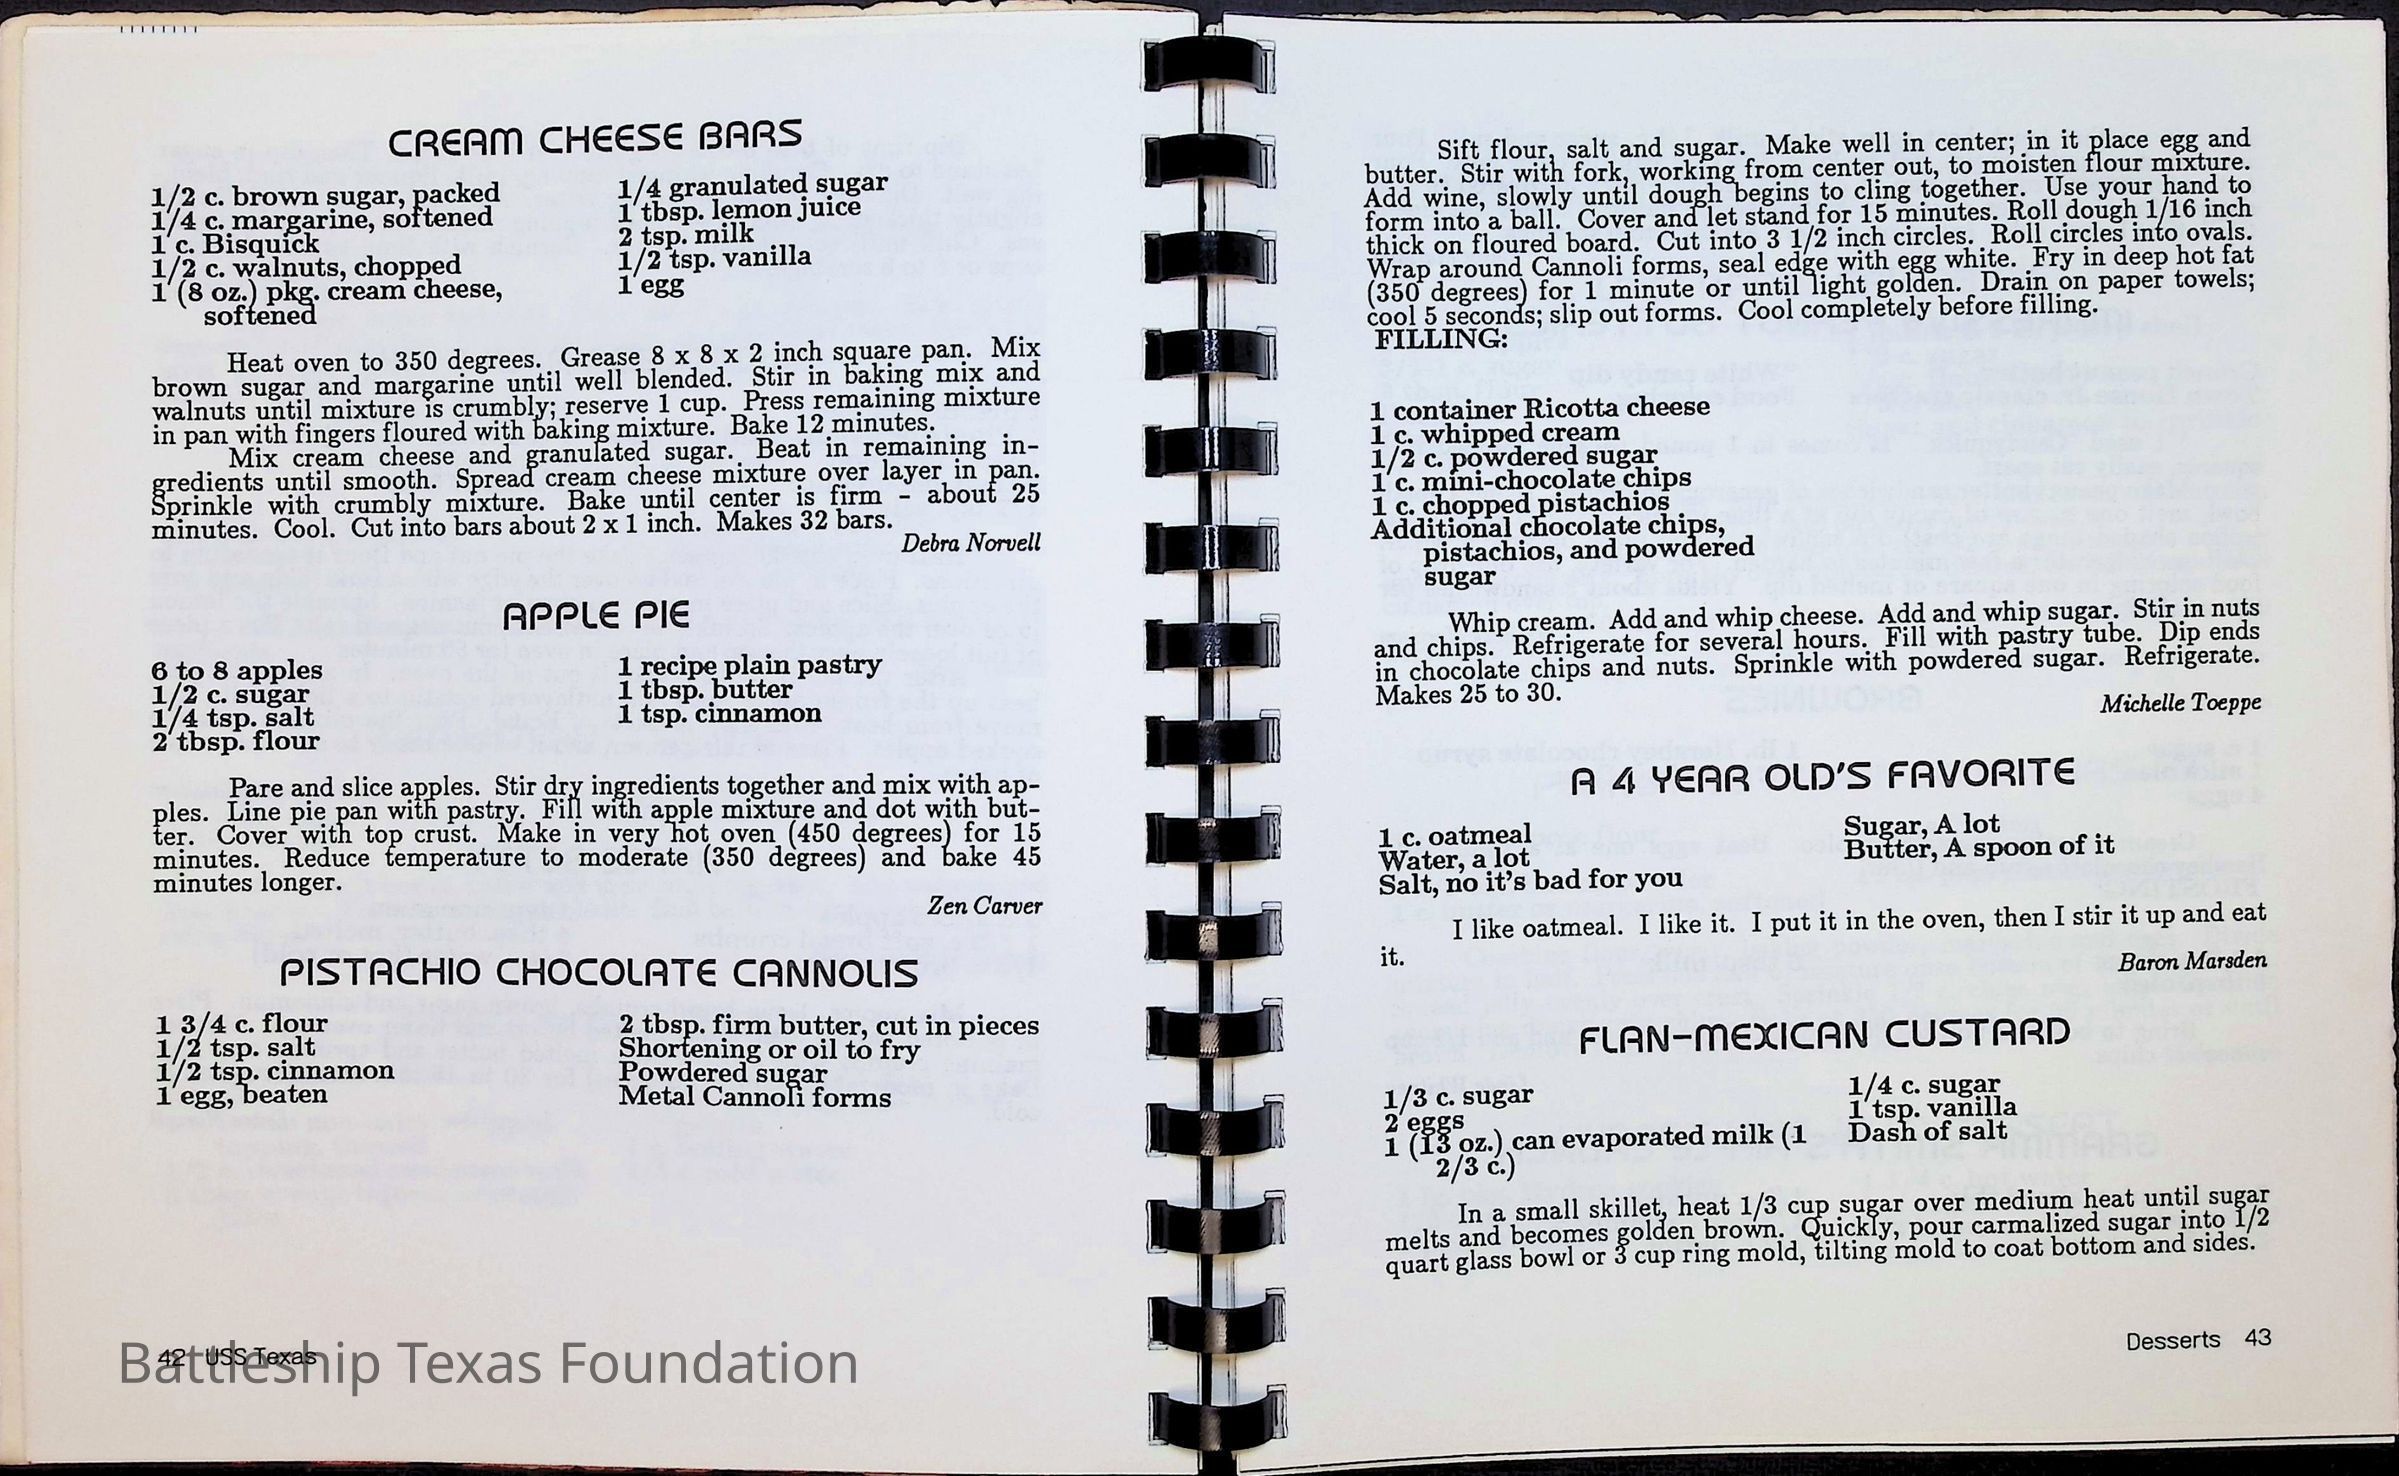 CREAM CHEESE BARS
1/2 c. brown sugar, packed
1/4 c. margarine, softened
1 c. Bisquick
1/2 c. walnuts, chopped
1 (8 oz.) pkg. cream cheese,
softened
1/4 granulated sugar
1 tbsp. lemon juice
2 tsp. milk
1/2 tsp. vanilla
1 egg
Heat oven to 350 degrees. Grease 8 x 8 x 2 inch square pan. Mix
brown sugar and margarine until well blended. Stir in baking mix and
walnuts until mixture is crumbly; reserve 1 cup. Press remaining mixture
in pan with fingers floured with baking mixture. Bake 12 minutes.
Mix cream cheese and granulated sugar. Beat in remaining in-
gredients until smooth. Spread cream cheese mixture over layer in pan.
Sprinkle with crumbly mixture. Bake until center is firm - about 25
minutes. Cool. Cut into bars about 2 x 1 inch. Makes 32 bars.
Debra Norvell
APPLE PIE
6 to 8 apples
1/2 c. sugar
1/4 tsp. salt
2 tbsp. flour
1 recipe plain pastry
1 tbsp. butter
1 tsp. cinnamon
Pare and slice apples. Stir dry ingredients together and mix with ap-
ples. Line pie pan with pastry. Fill with apple mixture and dot with but-
ter. Cover with top crust. Make in very hot oven (450 degrees) for 15
minutes. Reduce temperature to moderate (350 degrees) and bake 45
minutes longer.
Zen Carver
PISTACHIO CHOCOLATE CANNOLIS
1 3/4 c. flour
1/2 tsp. salt
1/2 tsp. cinnamon
1 egg, beaten
2 tbsp. firm butter, cut in pieces
Shortening or oil to fry
Powdered sugar
Metal Cannoli forms
42 USS Texas
Battleship Texas Foundation
Sift flour, salt and sugar. Make well in center; in it place egg and
butter. Stir with fork, working from center out, to moisten flour mixture.
Add wine, slowly until dough begins to cling together. Use your hand to
form into a ball. Cover and let stand for 15 minutes. Roll dough 1/16 inch
thick on floured board. Cut into 3 1/2 inch circles. Roll circles into ovals.
Wrap around Cannoli forms, seal edge with egg white. Fry in deep hot fat
(350 degrees) for 1 minute or until light golden. Drain on paper towels;
cool 5 seconds; slip out forms. Cool completely before filling.
FILLING:
1 container Ricotta cheese
1 c. whipped cream
1/2 c. powdered sugar
1 c. mini-chocolate chips
1 c. chopped pistachios
Additional chocolate chips,
pistachios, and powdered
sugar
Whip cream. Add and whip cheese. Add and whip sugar. Stir in nuts
and chips. Refrigerate for several hours. Fill with pastry tube. Dip ends
in chocolate chips and nuts. Sprinkle with powdered sugar. Refrigerate.
Makes 25 to 30.
Michelle Toeppe
A 4 YEAR OLD'S FAVORITE
1 c. oatmeal
Water, a lot
Salt, no it's bad for you
Sugar, A lot
Butter, A spoon of it
I like oatmeal. I like it. I put it in the oven, then I stir it up and eat
it.
Baron Marsden
FLAN-MEXICAN CUSTARD
1/3 c. sugar
2 eggs
1 (13 oz.) can evaporated milk (1
2/3 c.)
1/4 c. sugar
1 tsp. vanilla
Dash of salt
In a small skillet, heat 1/3 cup sugar over medium heat until sugar
melts and becomes golden brown. Quickly, pour carmalized sugar into 1/2
quart glass bowl or 3 cup ring mold, tilting mold to coat bottom and sides.
Desserts 43